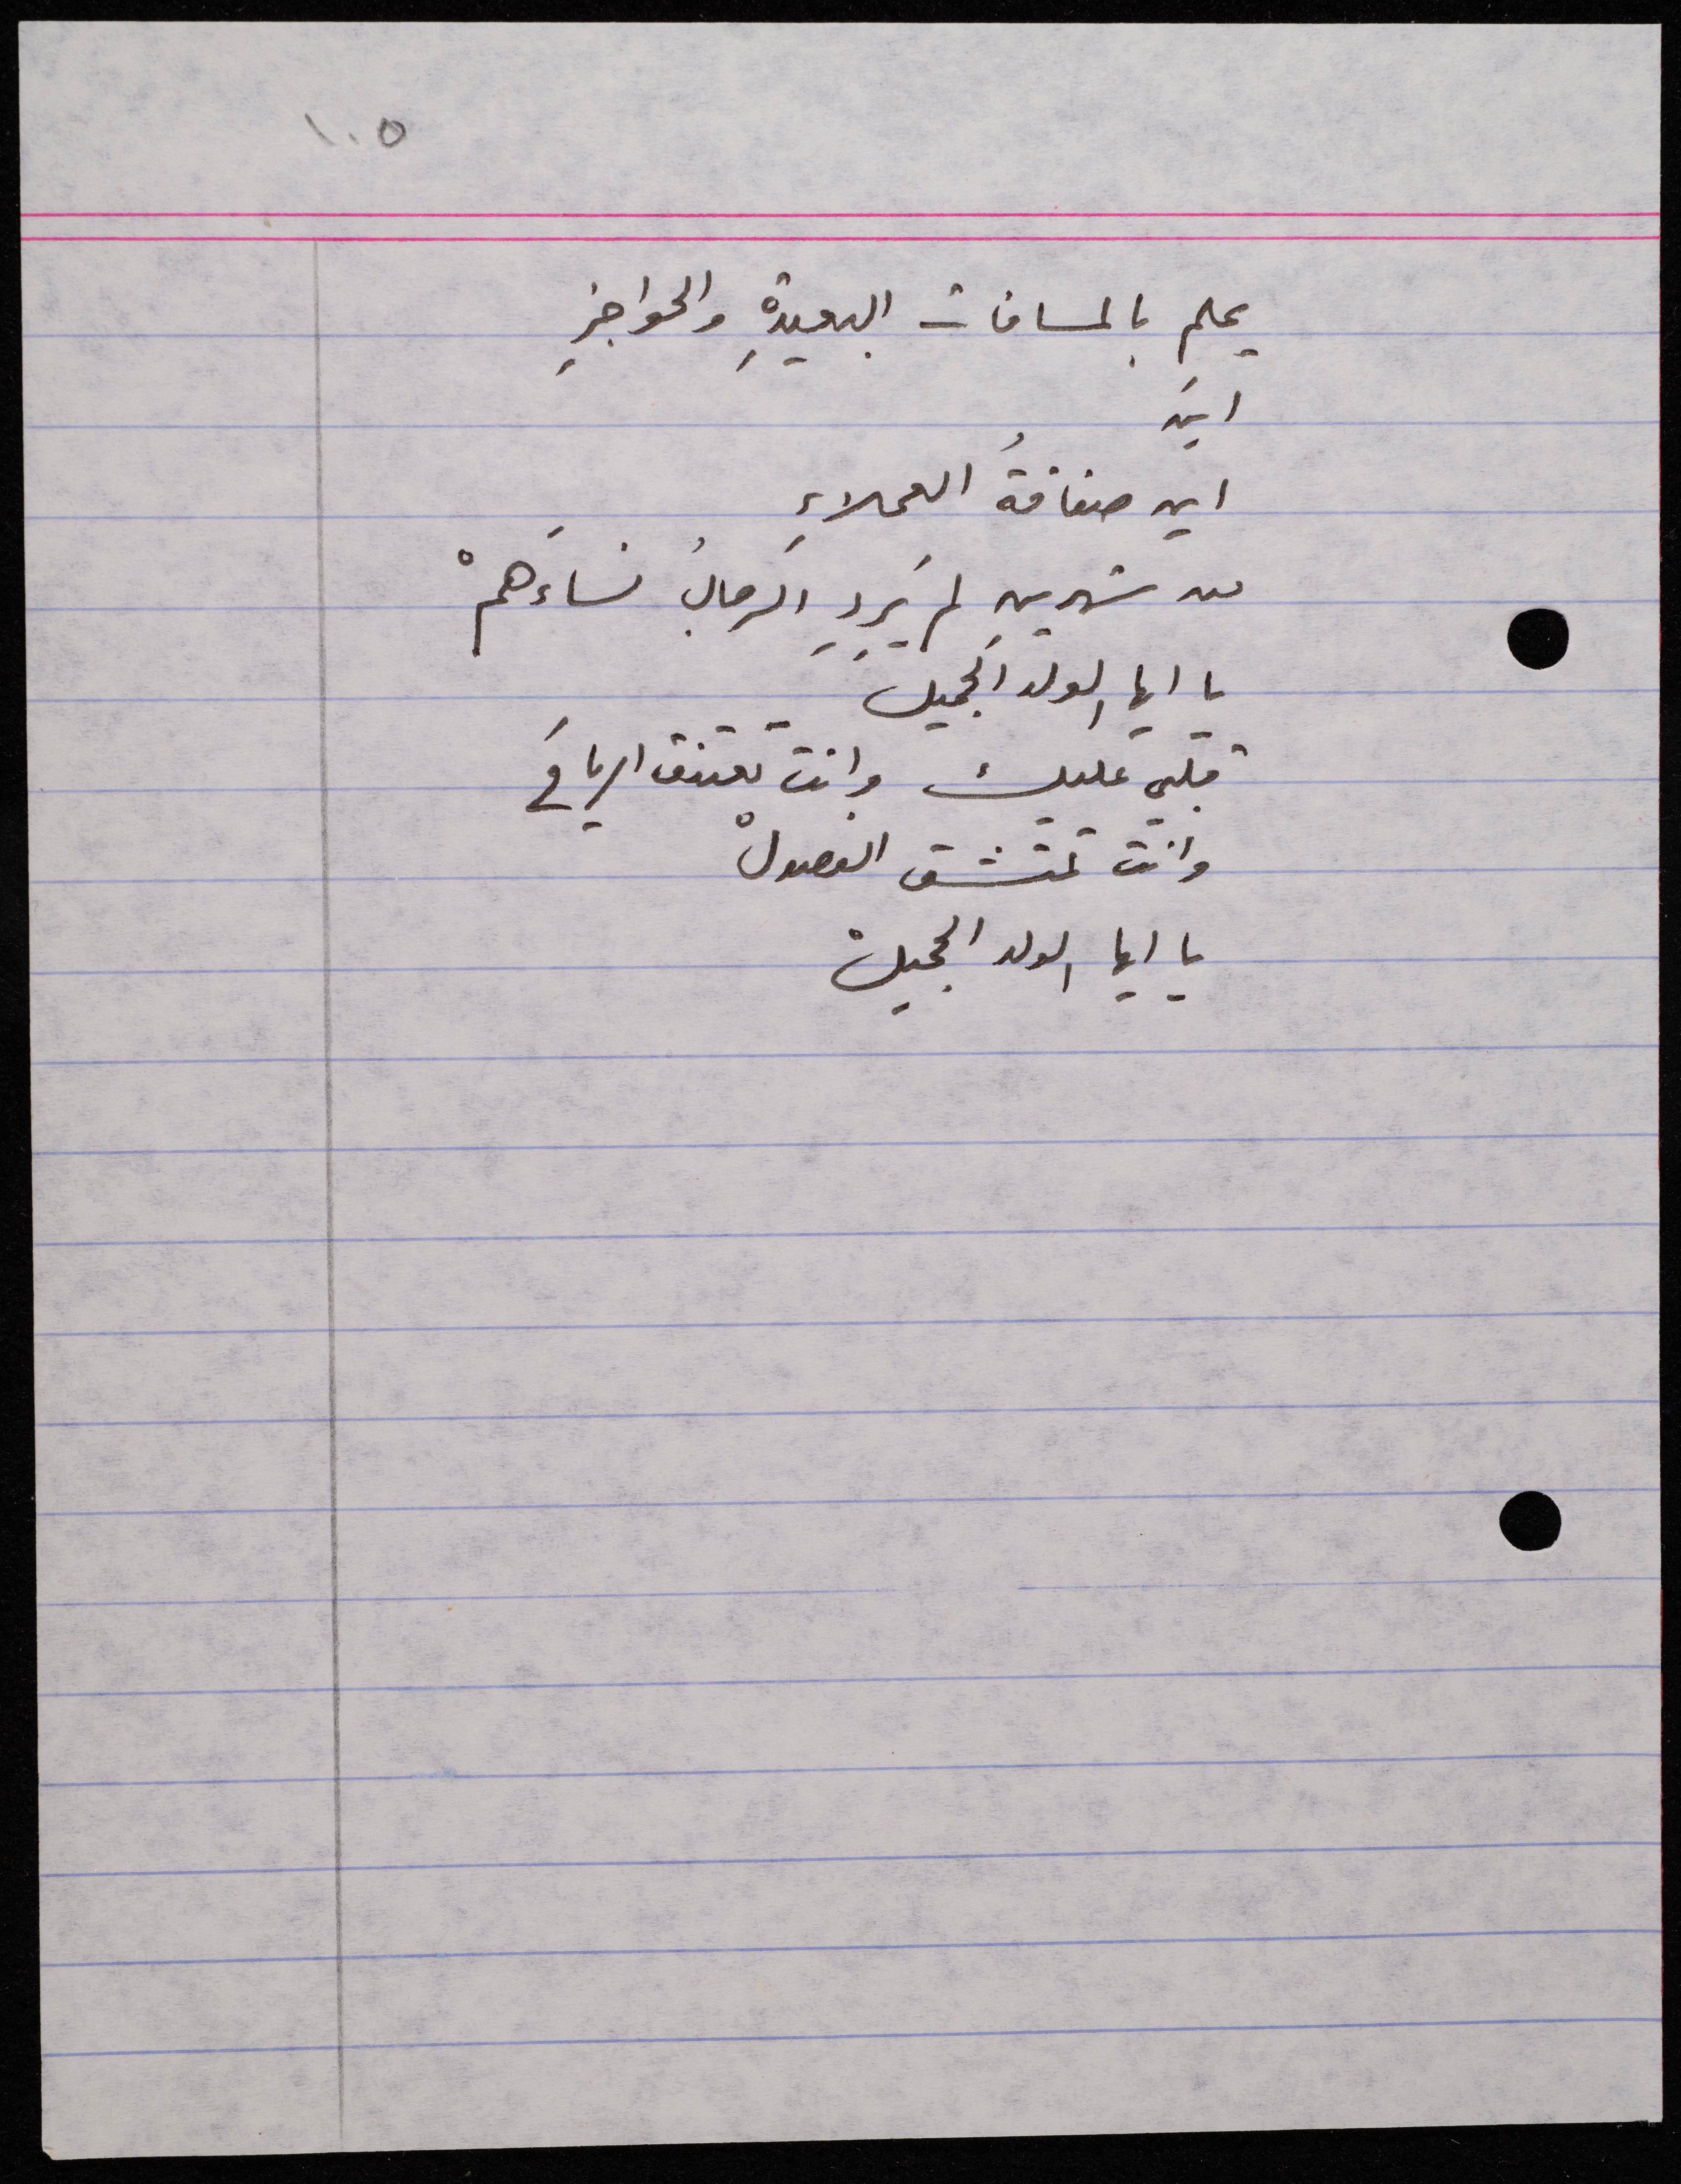 ١٠٥
يحلم بالمسافات البعيدةِ والحواجزِ
اينَ
اين صفاقةُ العملاءِ
من شهرينِ لم يَرِدِ الرجالُ نساءَهمْ
يا ايها الولد الجميل
قلبي عليك وانت تعتنق الرياحَ
وانت تمتشق الفصولْ
يا ايها الولد الجميلْ